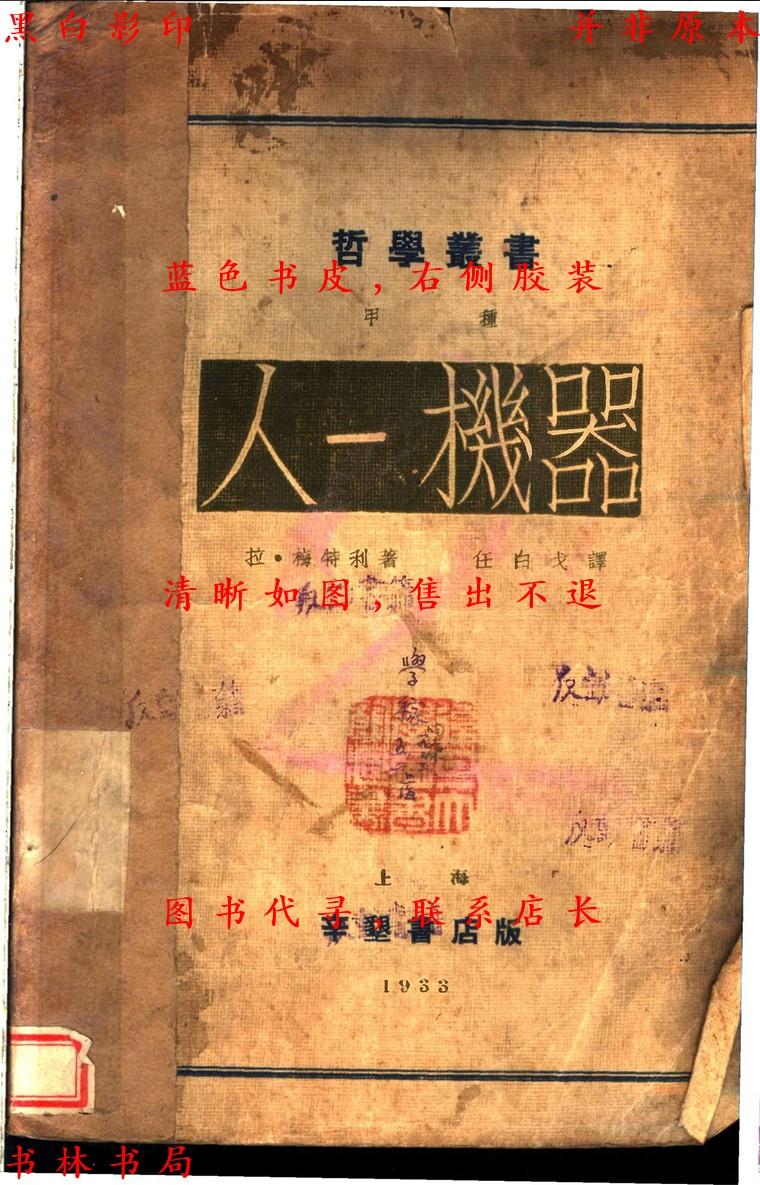 黑白影印 并非原本
哲學叢書
蓝色书皮,右侧胶装
甲 種
人—機器
拉•梅特利著 任白戈譯
清晰如图,售出不退
上海
图书代寻,联系店长
辛墾書店版
1933
书林书局